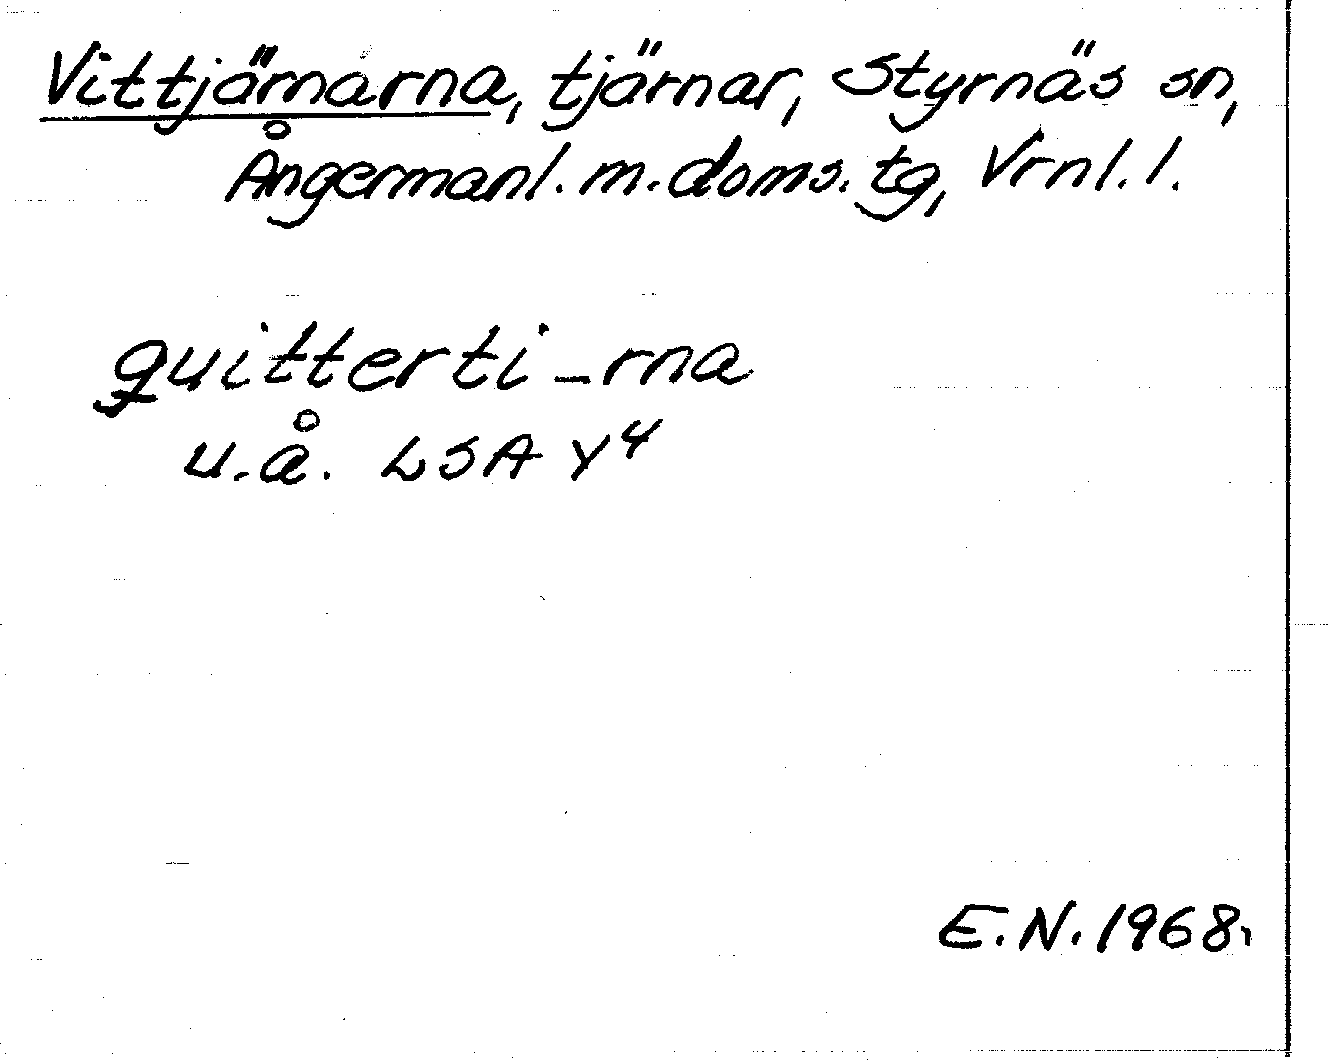 Vittjärnarna, tjärnar, Styrnäs sn,
Ångermanl. m. doms. tg, Vrnl. l.
quitterti-rna
u.å. LSA Y4
E.N. 1968.